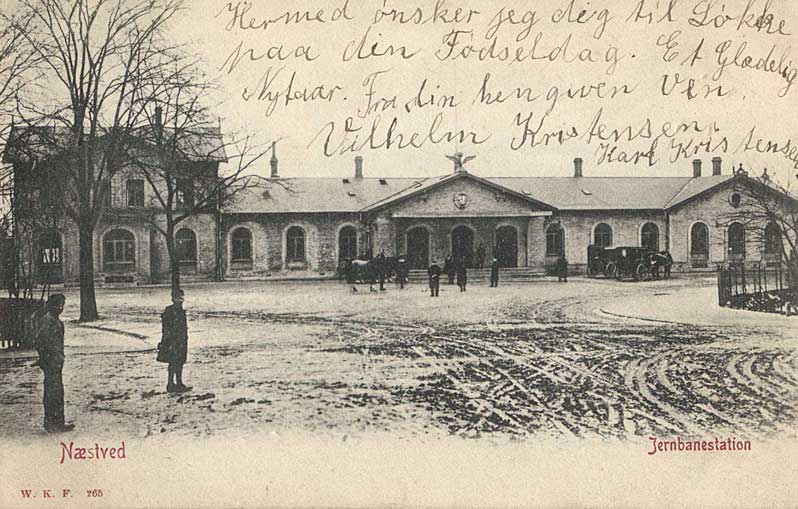 Hermed ønsker jeg dig til Løkke
paa din Fødseldag. Et Glædelig
Nytaar. Fra din hengiven Ven.
Vilhelm Kristensen.
Karl Kristensen
Næstved
Jernbanestation
W. K. F. 765